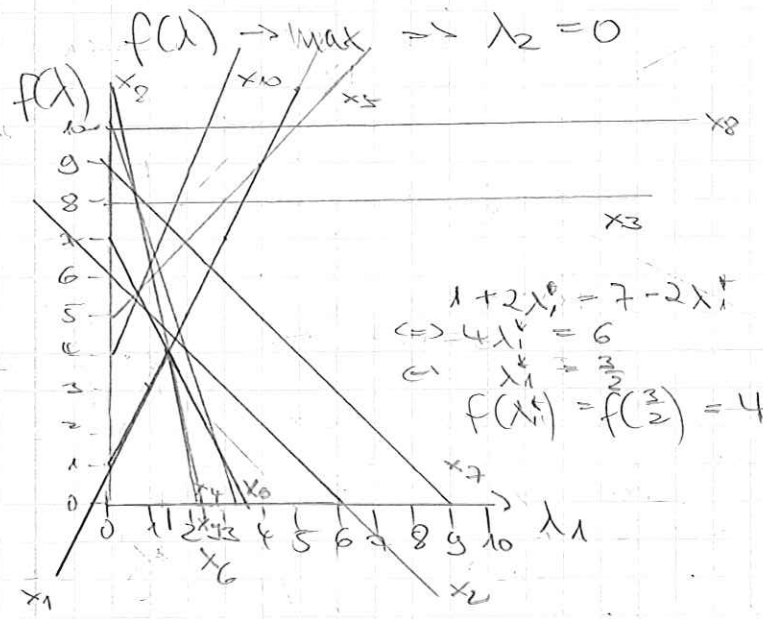 f(λ) → max => λ₂ = 0
f(λ)
x₂
x10
x5
x8
x3
10
9
8
7
6
5
4
3
2
1
0
1 + 2λ₁* = 7 - 2λ₁*
<=> 4λ₁* = 6
<=> λ₁* = 3/2
f(λ₁*) = f(3/2) = 4
x7
x4
x0
x9
x6
0 1 2 3 4 5 6 7 8 9 10 λ1
x1
x2